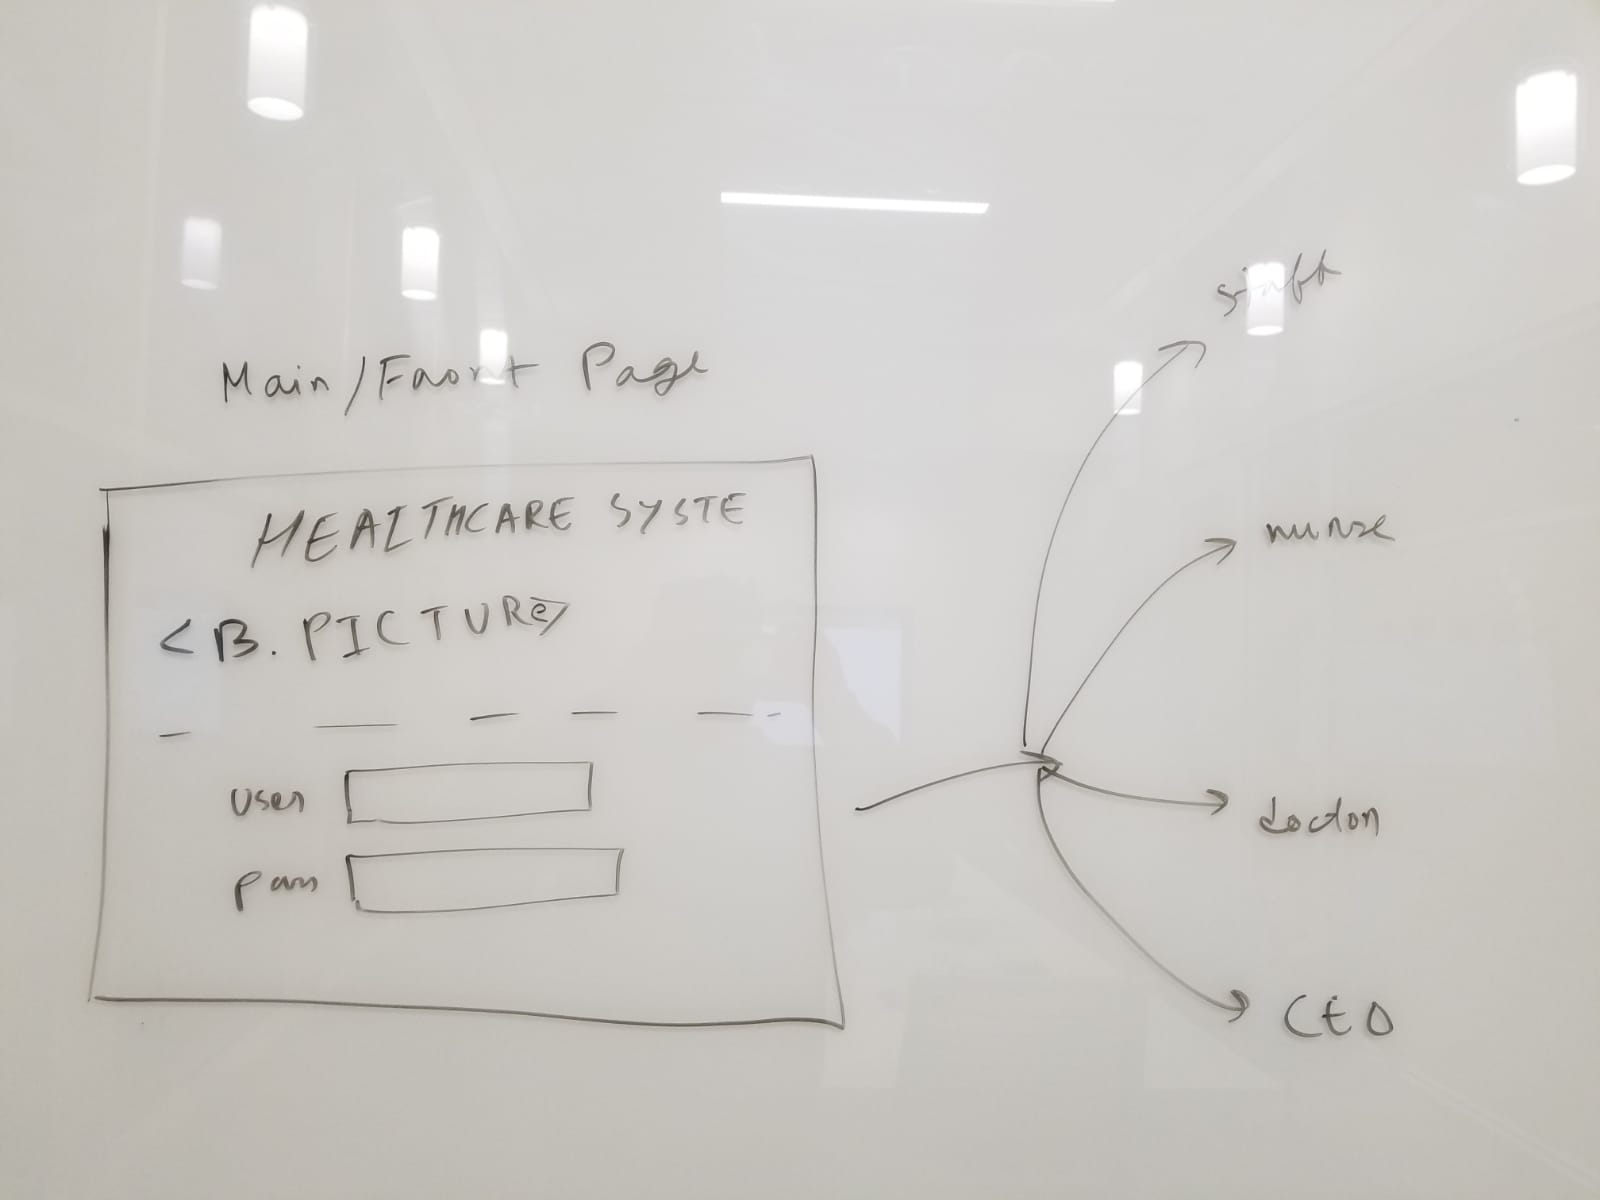 Main/Front Page
HEALTHCARE SYSTE
<B. PICTURE>
user
pass
staff
nurse
doctor
CEO